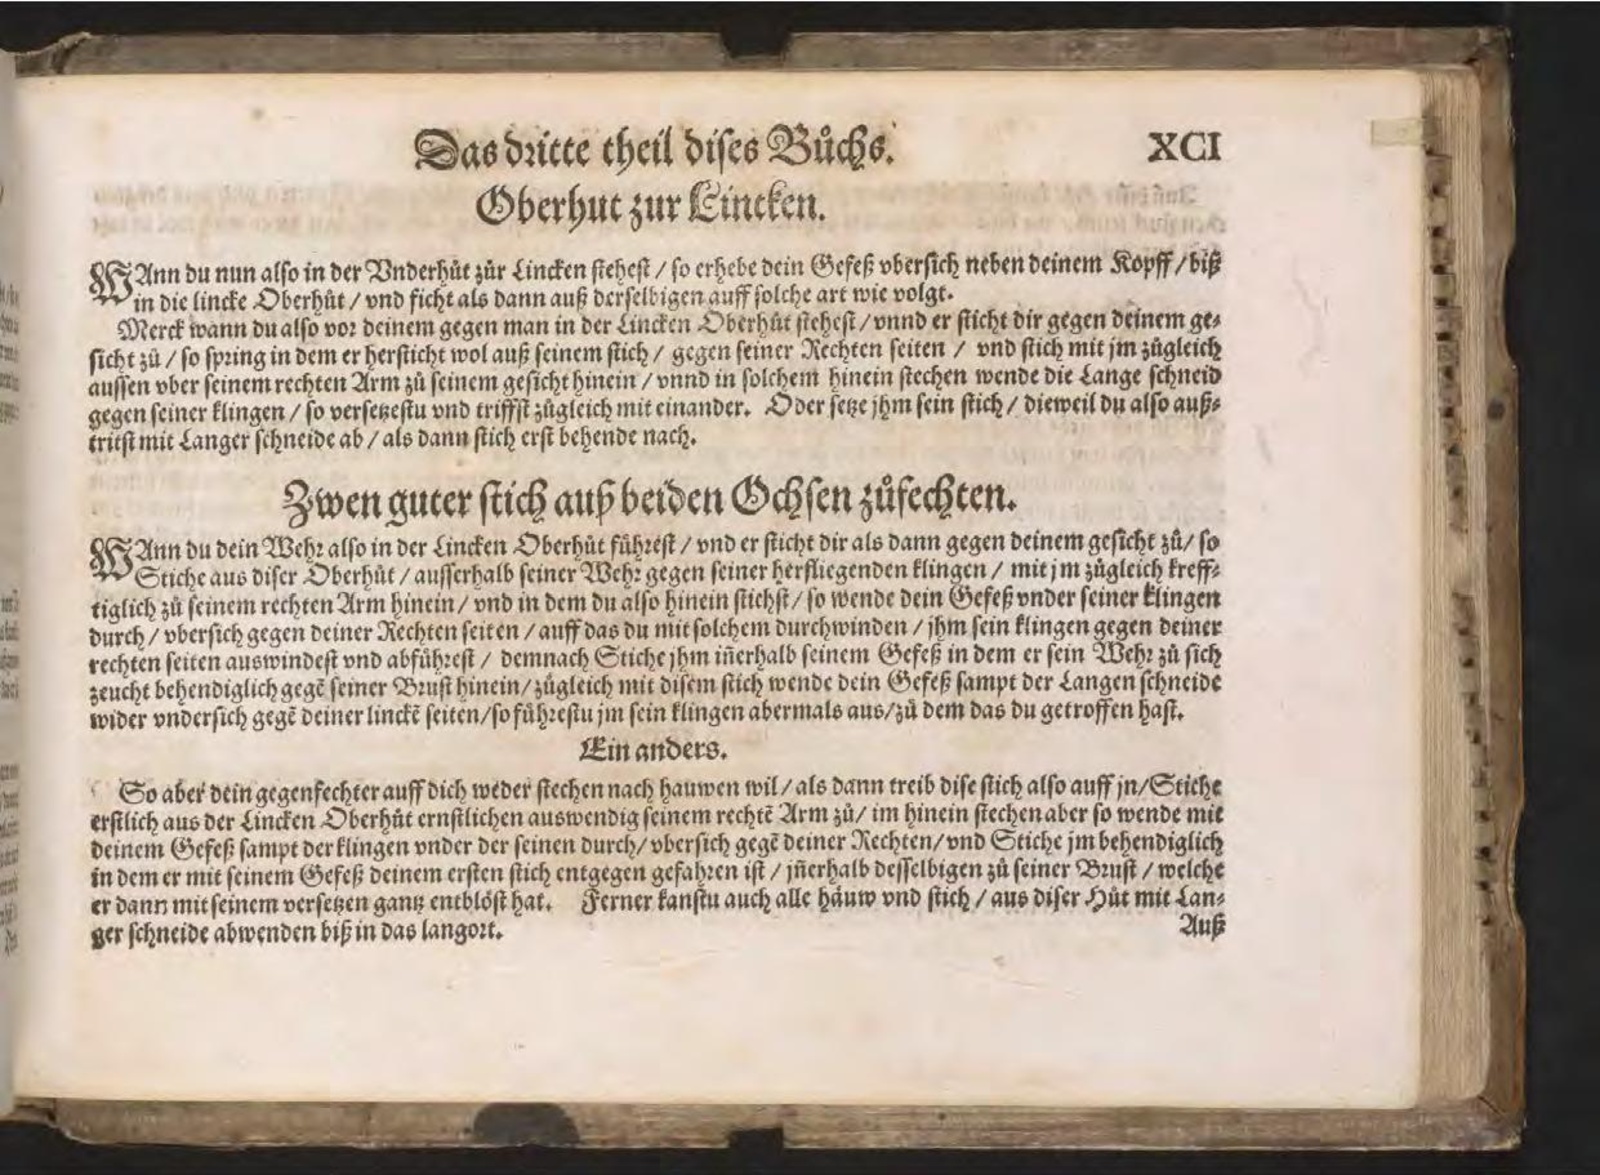 Das dritte theil dises Bůchs.
XCI
Oberhut zur Lincken.
WAnn du nun also in der Vnderhůt zůr Lincken stehest / so erhebe dein Gefeß vbersich neben deinem Kopff / biß
in die lincke Oberhůt / vnd ficht als dann auß derselbigen auff solche art wie volgt.
Merck wann du also vor deinem gegen man in der Lincken Oberhůt stehest / vnnd er sticht dir gegen deinem ge-
sicht zů / so spring in dem er hersticht wol auß seinem stich / gegen seiner Rechten seiten / vnd stich mit jm zůgleich
aussen vber seinem rechten Arm zů seinem gesicht hinein / vnnd in solchem hinein stechen wende die Lange schneid
gegen seiner klingen / so versetzestu vnd triffst zůgleich mit einander. Oder setze jhm sein stich / dieweil du also auß-
tritst mit Langer schneide ab / als dann stich erst behende nach.
Zwen guter stich auß beiden Ochsen zůfechten.
WAnn du dein Wehr also in der Lincken Oberhůt führest / vnd er sticht dir als dann gegen deinem gesicht zů / so
Stiche aus diser Oberhůt / ausserhalb seiner Wehr gegen seiner herfliegenden klingen / mit jm zůgleich kreff-
tiglich zů seinem rechten Arm hinein / vnd in dem du also hinein stichst / so wende dein Gefeß vnder seiner klingen
durch / vbersich gegen deiner Rechten seiten / auff das du mit solchem durchwinden / jhm sein klingen gegen deiner
rechten seiten auswindest vnd abführest / demnach Stiche jhm iñerhalb seinem Gefeß in dem er sein Wehr zů sich
zeucht behendiglich gegẽ seiner Brust hinein / zůgleich mit disem stich wende dein Gefeß sampt der Langen schneide
wider vndersich gegẽ deiner linckẽ seiten / so führestu jm sein klingen abermals aus / zů dem das du getroffen hast.
Ein anders.
So aber dein gegenfechter auff dich weder stechen nach hauwen wil / als dann treib dise stich also auff jn / Stiche
erstlich aus der Lincken Oberhůt ernstlichen auswendig seinem rechtẽ Arm zů / im hinein stechen aber so wende mit
deinem Gefeß sampt der klingen vnder der seinen durch / vbersich gegẽ deiner Rechten / vnd Stiche jm behendiglich
in dem er mit seinem Gefeß deinem ersten stich entgegen gefahren ist / jñerhalb desselbigen zů seiner Brust / welche
er dann mit seinem versetzen gantz entblöst hat. Ferner kanstu auch alle häuw vnd stich / aus diser Hůt mit Lan-
ger schneide abwenden biß in das langort.
Auß